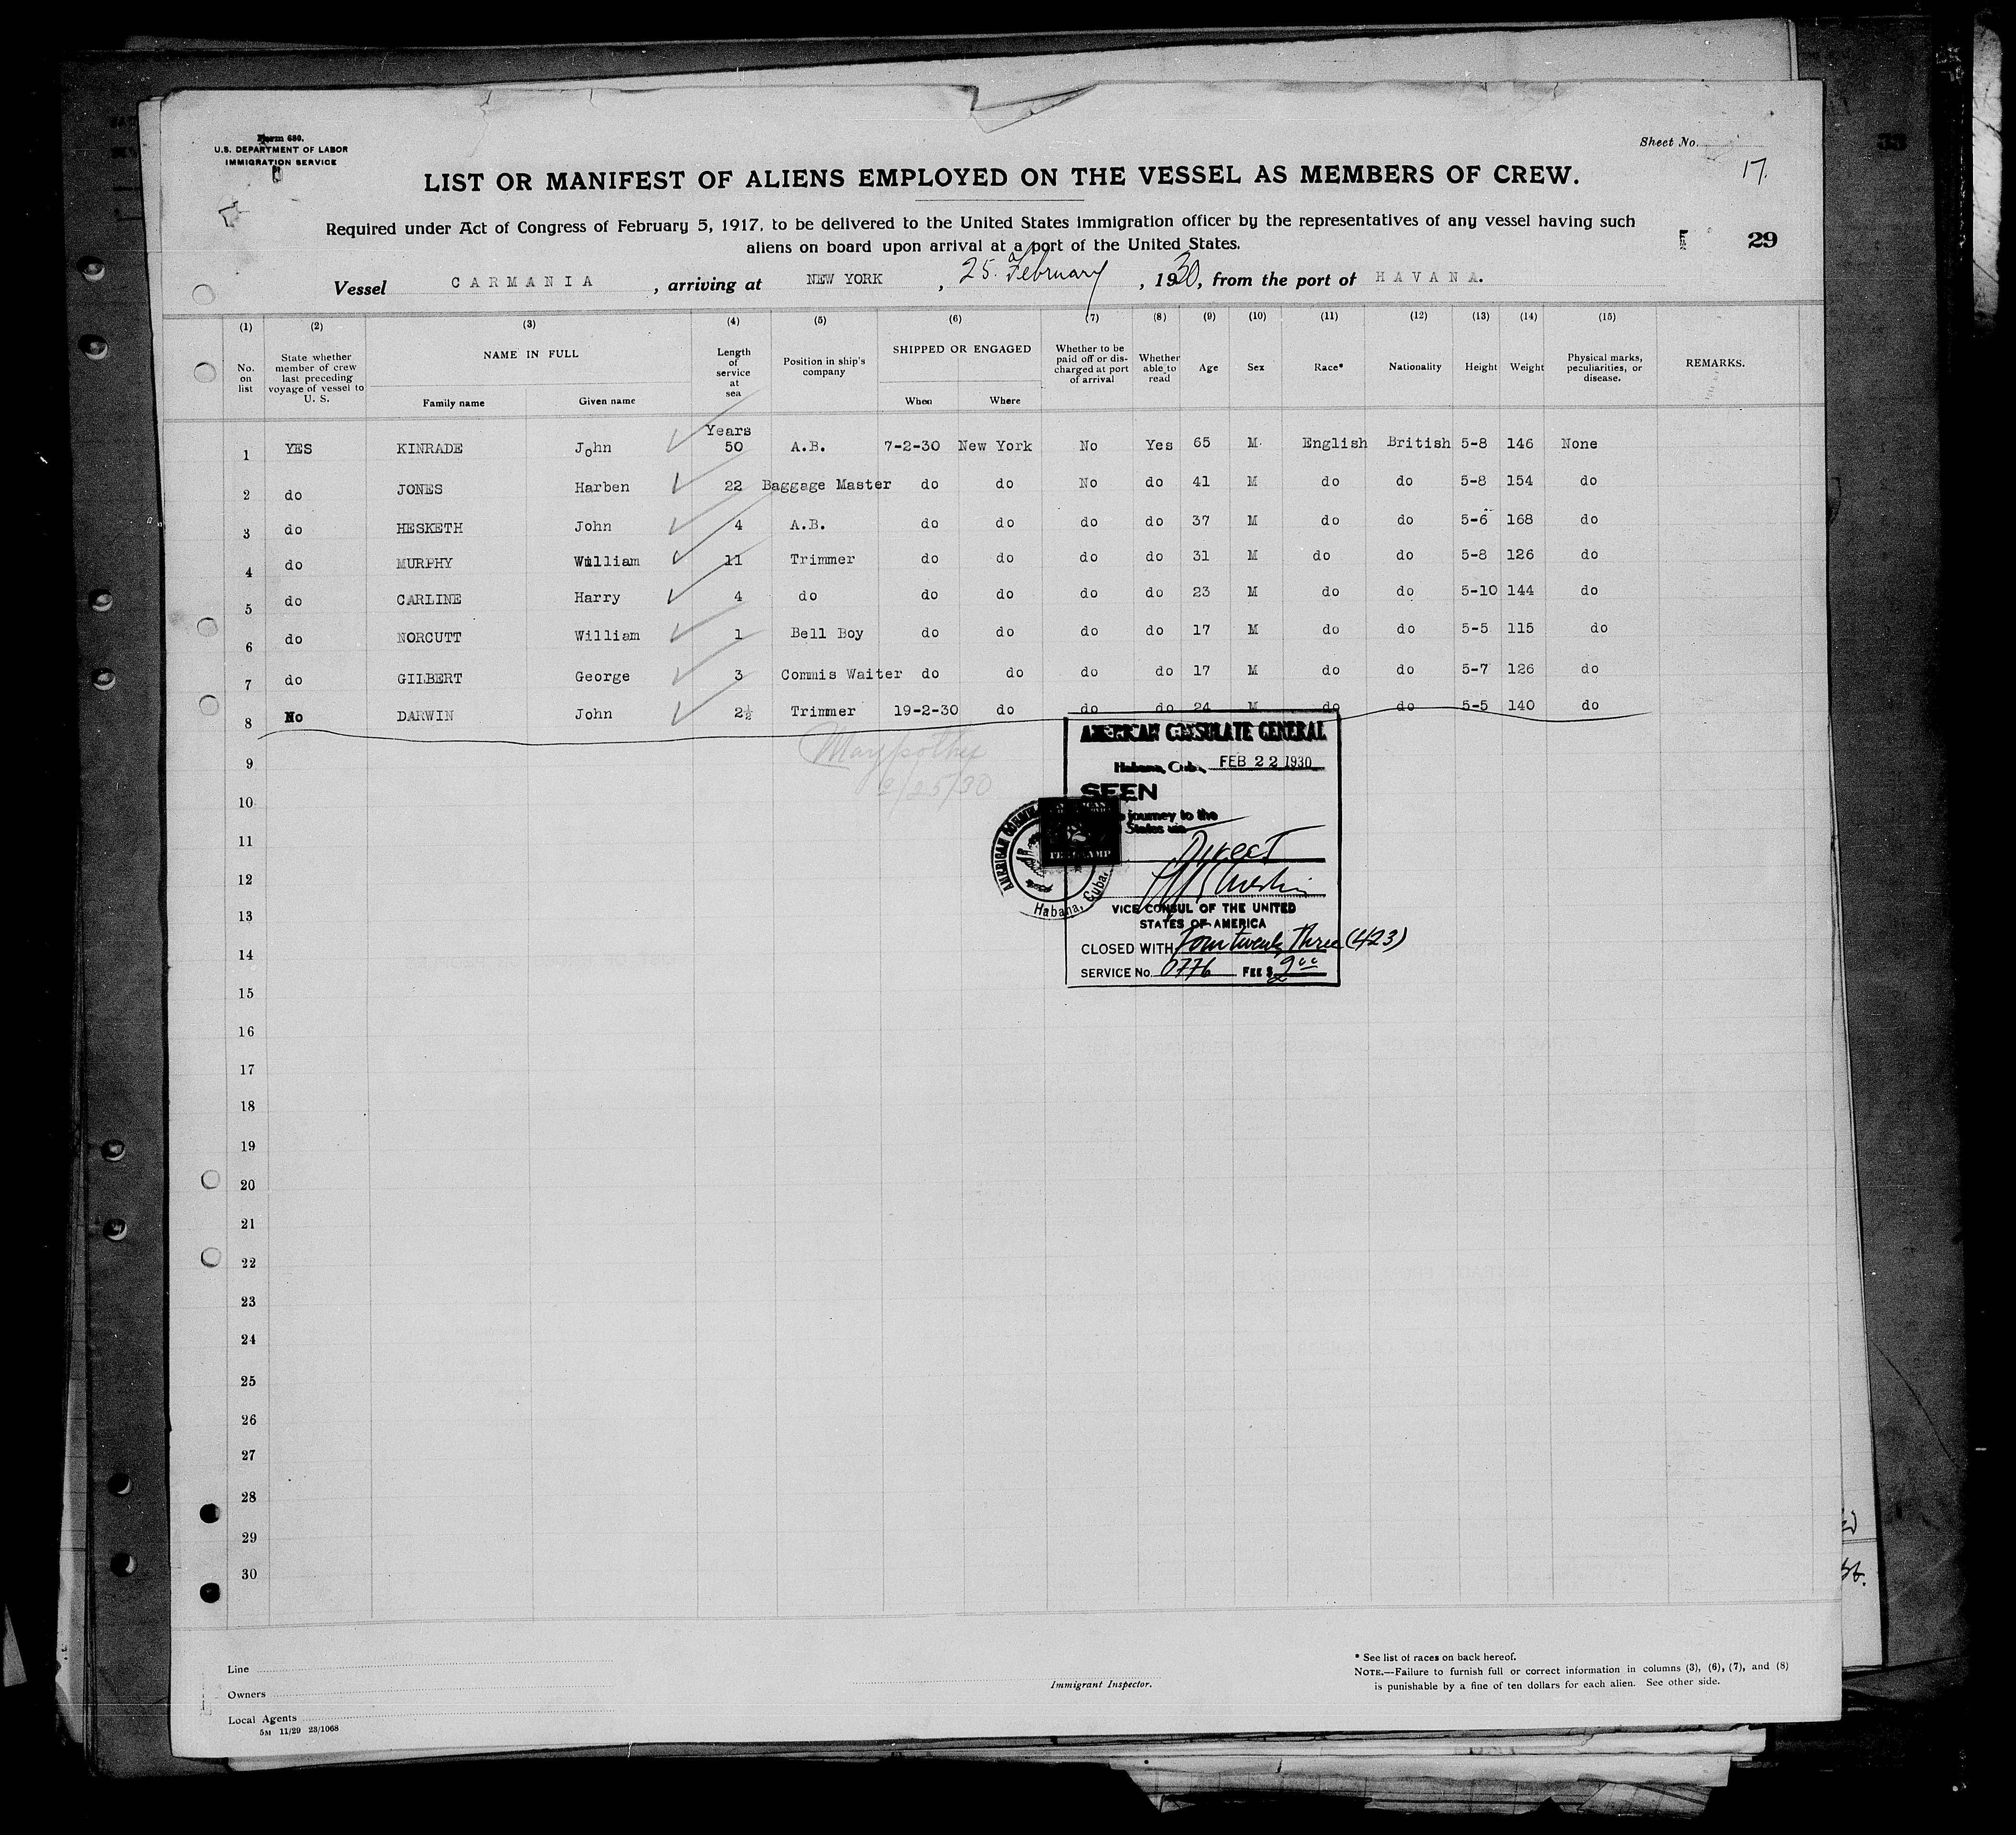 Form 680.
U.S. DEPARTMENT OF LABOR
IMMIGRATION SERVICE
Sheet No.
17.
LIST OR MANIFEST OF ALIENS EMPLOYED ON THE VESSEL AS MEMBERS OF CREW.
Required under Act of Congress of February 5, 1917, to be delivered to the United States immigration officer by the representatives of any vessel having such
aliens on board upon arrival at a port of the United States.
29
Vessel CARMANIA, arriving at NEW YORK, 25. February, 1930, from the port of HAVANA.
(1) (2) (3) (4) (5) (6) (7) (8) (9) (10) (11) (12) (13) (14) (15)
No. on list
State whether member of crew last preceding voyage of vessel to U. S.
NAME IN FULL
Family name
Given name
Length of service at sea
Position in ship's company
SHIPPED OR ENGAGED
When
Where
Whether to be paid off or discharged at port of arrival
Whether able to read
Age
Sex
Race*
Nationality
Height
Weight
Physical marks, peculiarities, or disease.
REMARKS.
Years
1 YES KINRADE John 50 A.B. 7-2-30 New York No Yes 65 M. English British 5-8 146 None
2 do JONES Harben 22 Baggage Master do do No do 41 M do do 5-8 154 do
3 do HESKETH John 4 A.B. do do do do 37 M do do 5-6 168 do
4 do MURPHY William 11 Trimmer do do do do 31 M do do 5-8 126 do
5 do CARLINE Harry 4 do do do do do 23 M do do 5-10 144 do
6 do NORCUTT William 1 Bell Boy do do do do 17 M do do 5-5 115 do
7 do GILBERT George 3 Commis Waiter do do do do 17 M do do 5-7 126 do
8 No DARWIN John 2½ Trimmer 19-2-30 do do do 24 M do do 5-5 140 do
2/25/30
AMERICAN CONSULATE GENERAL
Habana, Cuba, FEB 22 1930
SEEN
journey to the
States via
Direct
VICE CONSUL OF THE UNITED
STATES OF AMERICA
CLOSED WITH Four twenty Three (423)
SERVICE No. 0776 FEE $ 2.00
AMERICAN
Habana, Cuba.
FEE STAMP
9
10
11
12
13
14
15
16
17
18
19
20
21
22
23
24
25
26
27
28
29
30
Line
Owners
Local Agents
5M 11/29 23/1068
Immigrant Inspector.
* See list of races on back hereof.
NOTE.—Failure to furnish full or correct information in columns (3), (6), (7), and (8)
is punishable by a fine of ten dollars for each alien. See other side.